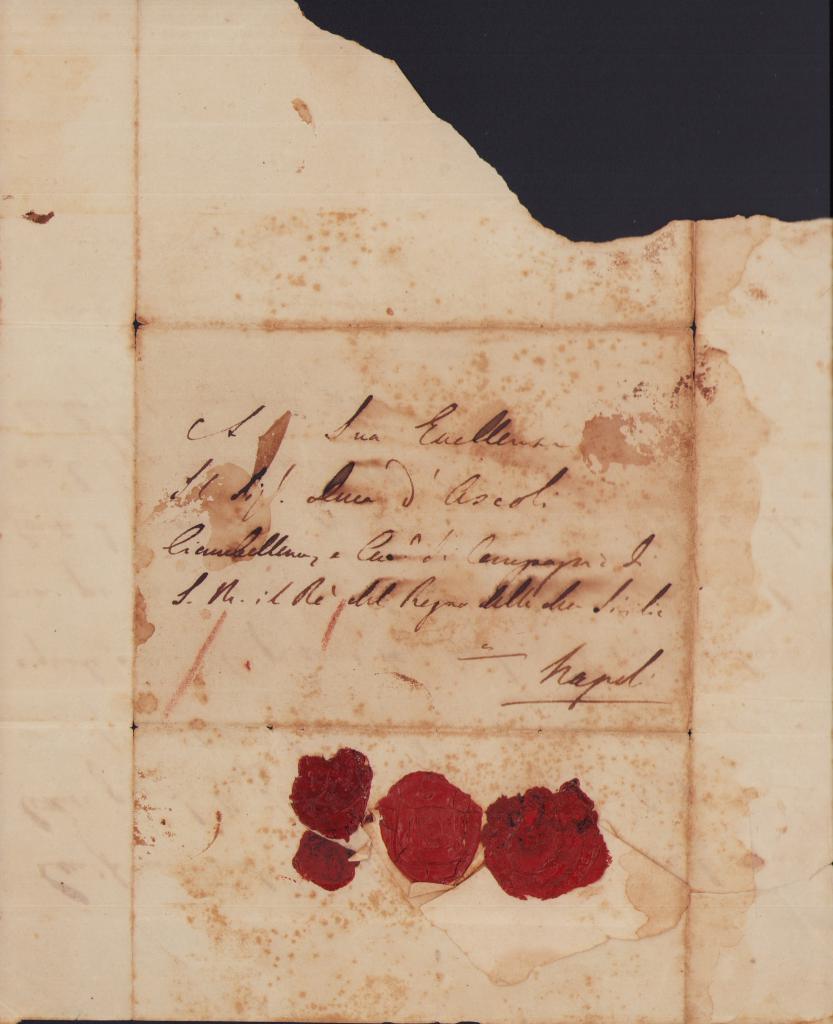 A Sua Eccellenza
Il Sig.r Duca d'Ascoli
Ciambellano, e Cav.o di Compagnia di
S. M. il Rè del Regno delle due Sicilie
Napoli